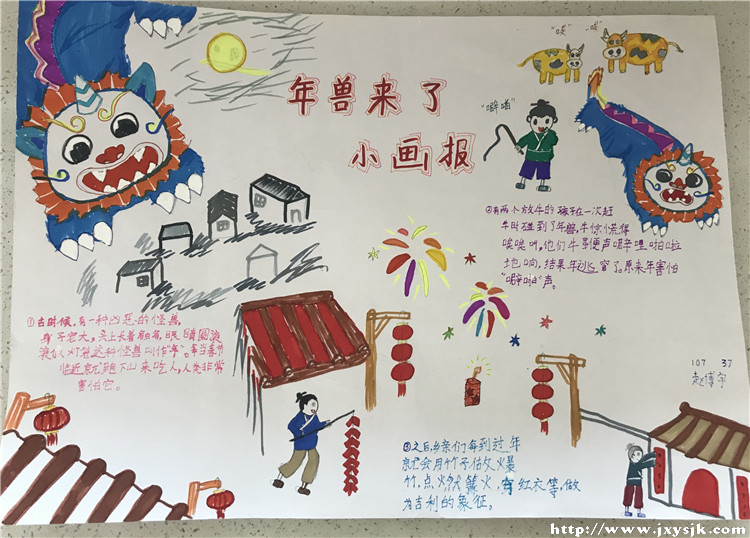 年兽来了
小画报
"哞"
"哞"
"噼啪"
①古时候,有一种凶恶的怪兽,
身子宏大,头上长着触角,眼睛圆滚
滚似灯笼,这种怪兽叫作"年"。每当春节
临近就跑下山来吃人,人类非常
害怕它。
②有两个放牛的孩子在一次赶
牛时碰到了年兽,牛惊慌得
哞哞叫,他们牛鞭便声噼哩啪啦
地响,结果年逃窜了。原来年害怕
"噼啪"声。
107 37
赵博宇
③之后,乡亲们每到过年
就会用竹子做火爆
竹,点火燃篝火,穿红衣等,做
为吉利的象征。
http://www.jxysjk.com